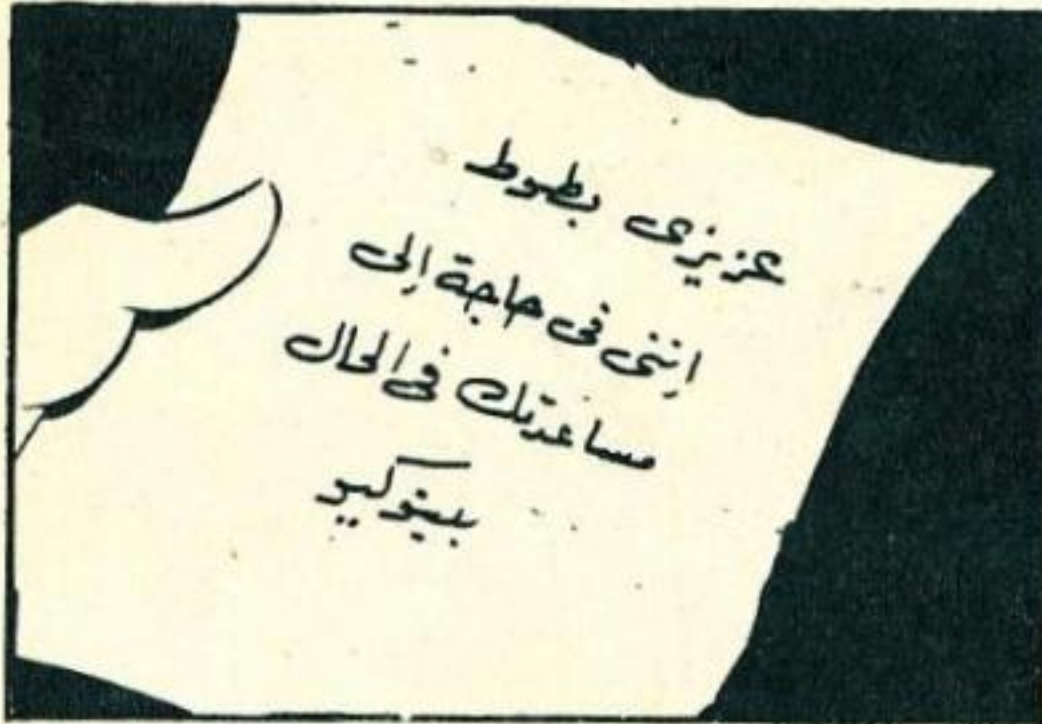 عزيزى بطوط
إننى فى حاجة إلى
مساعدتك فى الحال
بينوكيو